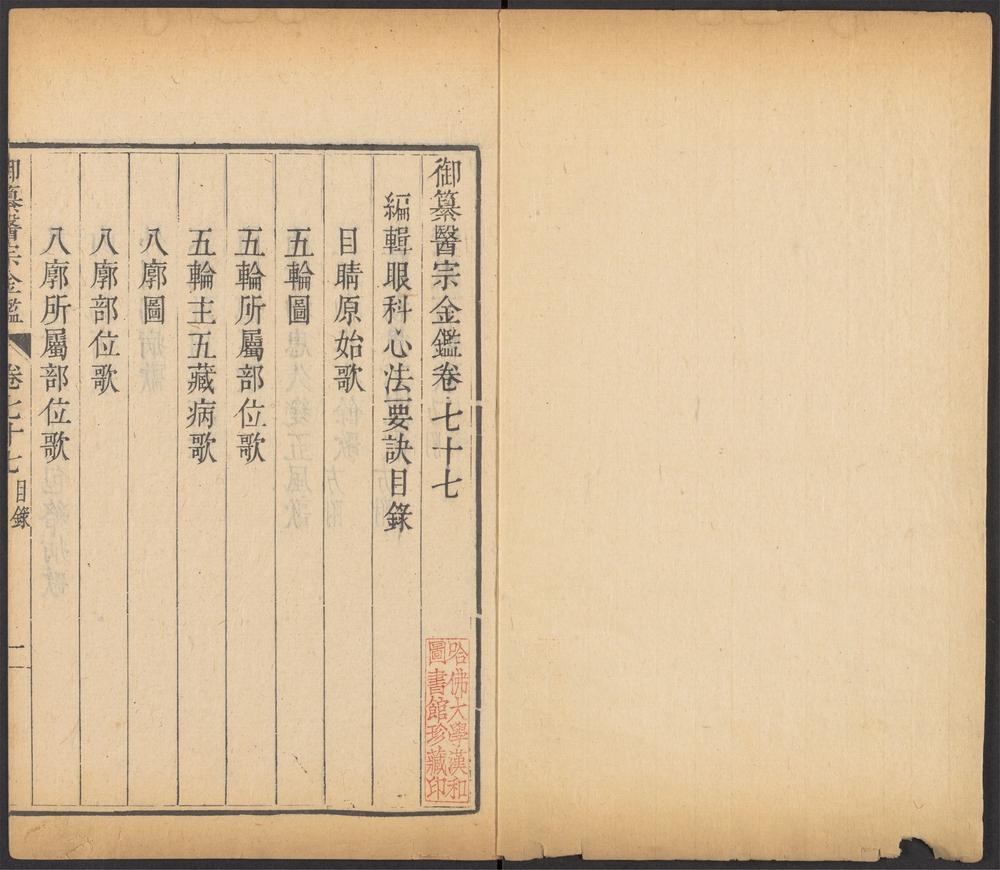 御纂醫宗金鑑卷七十七
編輯眼科心法要訣目錄
目睛原始歌
五輪圖
五輪所屬部位歌
五輪主五藏病歌
八廓圖
八廓部位歌
八廓所屬部位歌
御纂醫宗金鑑
卷七十七
目錄
一
哈佛大學漢和
圖書館珍藏印